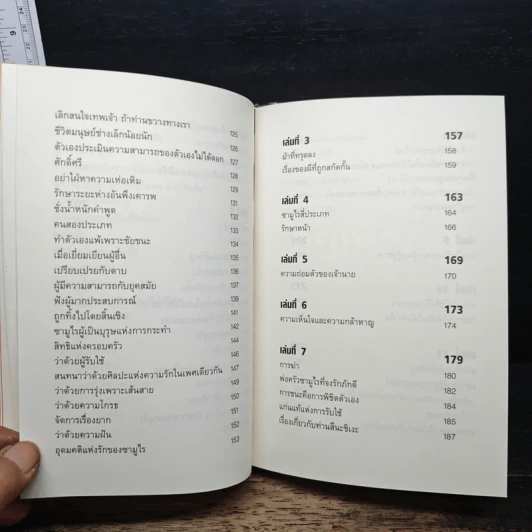 เลิกสนใจเทพเจ้า ถ้าท่านขวางทางเรา 125
ชีวิตมนุษย์ช่างเล็กน้อยนัก 126
ตัวเองประเมินความสามารถของตัวเองไม่ได้ดอก 127
ศักดิ์ศรี 128
อย่าไฝ่หาความเห่อเหิม 129
รักษาระยะห่างอันพึงเคารพ 131
ชั่งน้ำหนักคำพูด 132
คนสองประเภท 133
ทำตัวเองแพ้เพราะชัยชนะ 134
เมื่อเยี่ยมเยียนผู้อื่น 136
เปรียบเปรยกับดาบ 137
ผู้มีความสามารถกับยุคสมัย 138
ฟังผู้มากประสบการณ์ 139
ถูกทิ้งไปโดยสิ้นเชิง 141
ซามูไรผู้เป็นบุรุษแห่งการกระทำ 142
สิทธิแห่งครอบครัว 144
ว่าด้วยผู้รับใช้ 146
สนทนาว่าด้วยศิลปะแห่งความรักในเพศเดียวกัน 147
ว่าด้วยการรุ่งเพราะเส้นสาย 149
ว่าด้วยความโกรธ 150
จัดการเรื่องยาก 151
ว่าด้วยความฝัน 152
อุดมคติแห่งรักของซามูไร 153
เล่มที่ 3 157
ม้าที่ทรุดลง 158
เรื่องของผีที่ถูกสกัดกั้น 159
เล่มที่ 4 163
ซามูไรสี่ประเภท 164
รักษาหน้า 166
เล่มที่ 5 169
ความถ่อมตัวของเจ้านาย 170
เล่มที่ 6 173
ความเห็นใจและความกล้าหาญ 174
เล่มที่ 7 179
การฆ่า 180
พ่อครัวซามูไรที่จงรักภักดี 182
การชนะคือการพิชิตตัวเอง 184
แก่นแท้แห่งการรับใช้ 185
เรื่องเกี่ยวกับท่านสึนะชิเงะ 187